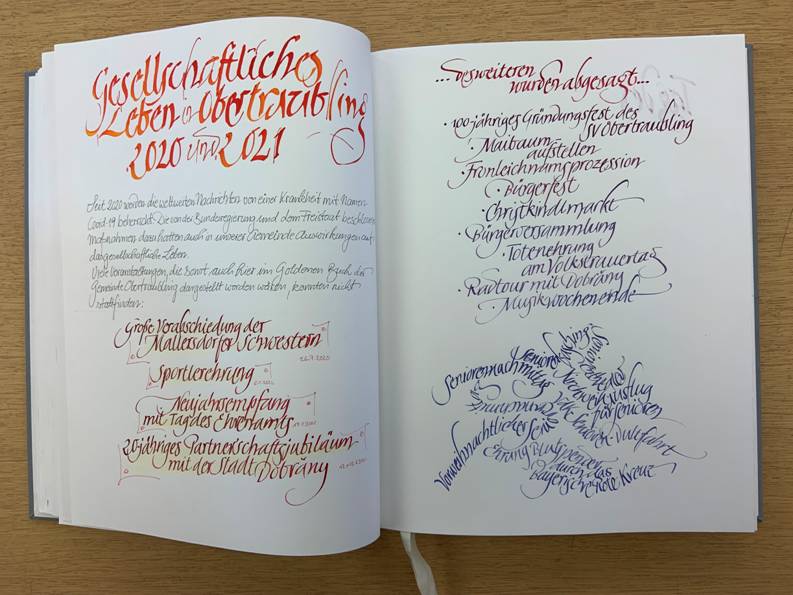 Gesellschaftliches
Leben in Obertraubling
2020 und 2021
Seit 2020 werden die weltweiten Nachrichten von einer Krankheit mit Namen
Covid-19 beherrscht. Die von der Bundesregierung und dem Freistaat beschlossenen
Maßnahmen dazu hatten auch in unserer Gemeinde Auswirkungen auf
das gesellschaftliche Leben.
Viele Veranstaltungen, die sonst auch hier im Goldenen Buch der
Gemeinde Obertraubling dargestellt worden wären, konnten nicht
stattfinden:
Große Verabschiedung der
Mallersdorfer Schwestern
Sportlerehrung
Neujahrsempfang
mit Tag des Ehrenamts
20jähriges Partnerschaftsjubiläum
mit der Stadt Dobřany
...desweiteren
wurden abgesagt...
· 100 jähriges Gründungsfest des
SV Obertraubling
· Maibaum
aufstellen
· Fronleichnamsprozession
· Bürgerfest
· Christkindlmarkt
· Bürgerversammlung
· Totenehrung
am Volkstrauertag
· Radtour mit Dobřany
· Musikwochenende
Seniorennachmittag
Senioren
Fasching
Ausflug
für Senioren
Vorweihnachtliche Feier
Senioren-Dultfahrt
Ehrung Blutspender
durch das
Bayerische Rote Kreuz